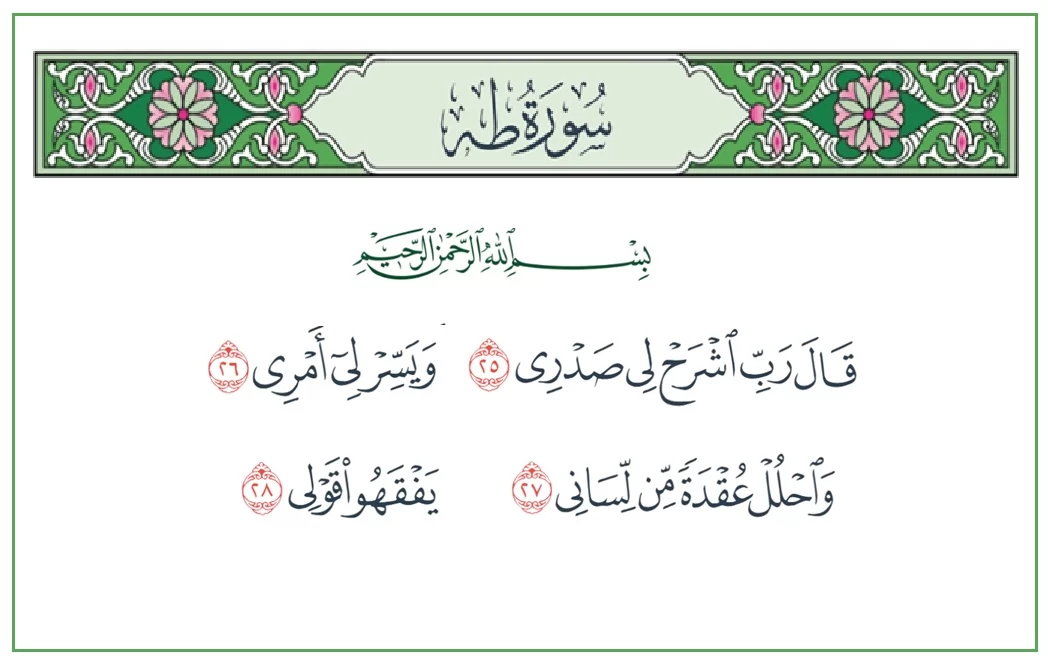 سُورَةُ طه
بِسْمِ ٱللَّهِ ٱلرَّحْمَٰنِ ٱلرَّحِيمِ
قَالَ رَبِّ ٱشْرَحْ لِى صَدْرِى ٢٥ وَيَسِّرْ لِىٓ أَمْرِى ٢٦
وَٱحْلُلْ عُقْدَةً مِّن لِّسَانِى ٢٧ يَفْقَهُوا۟ قَوْلِى ٢٨